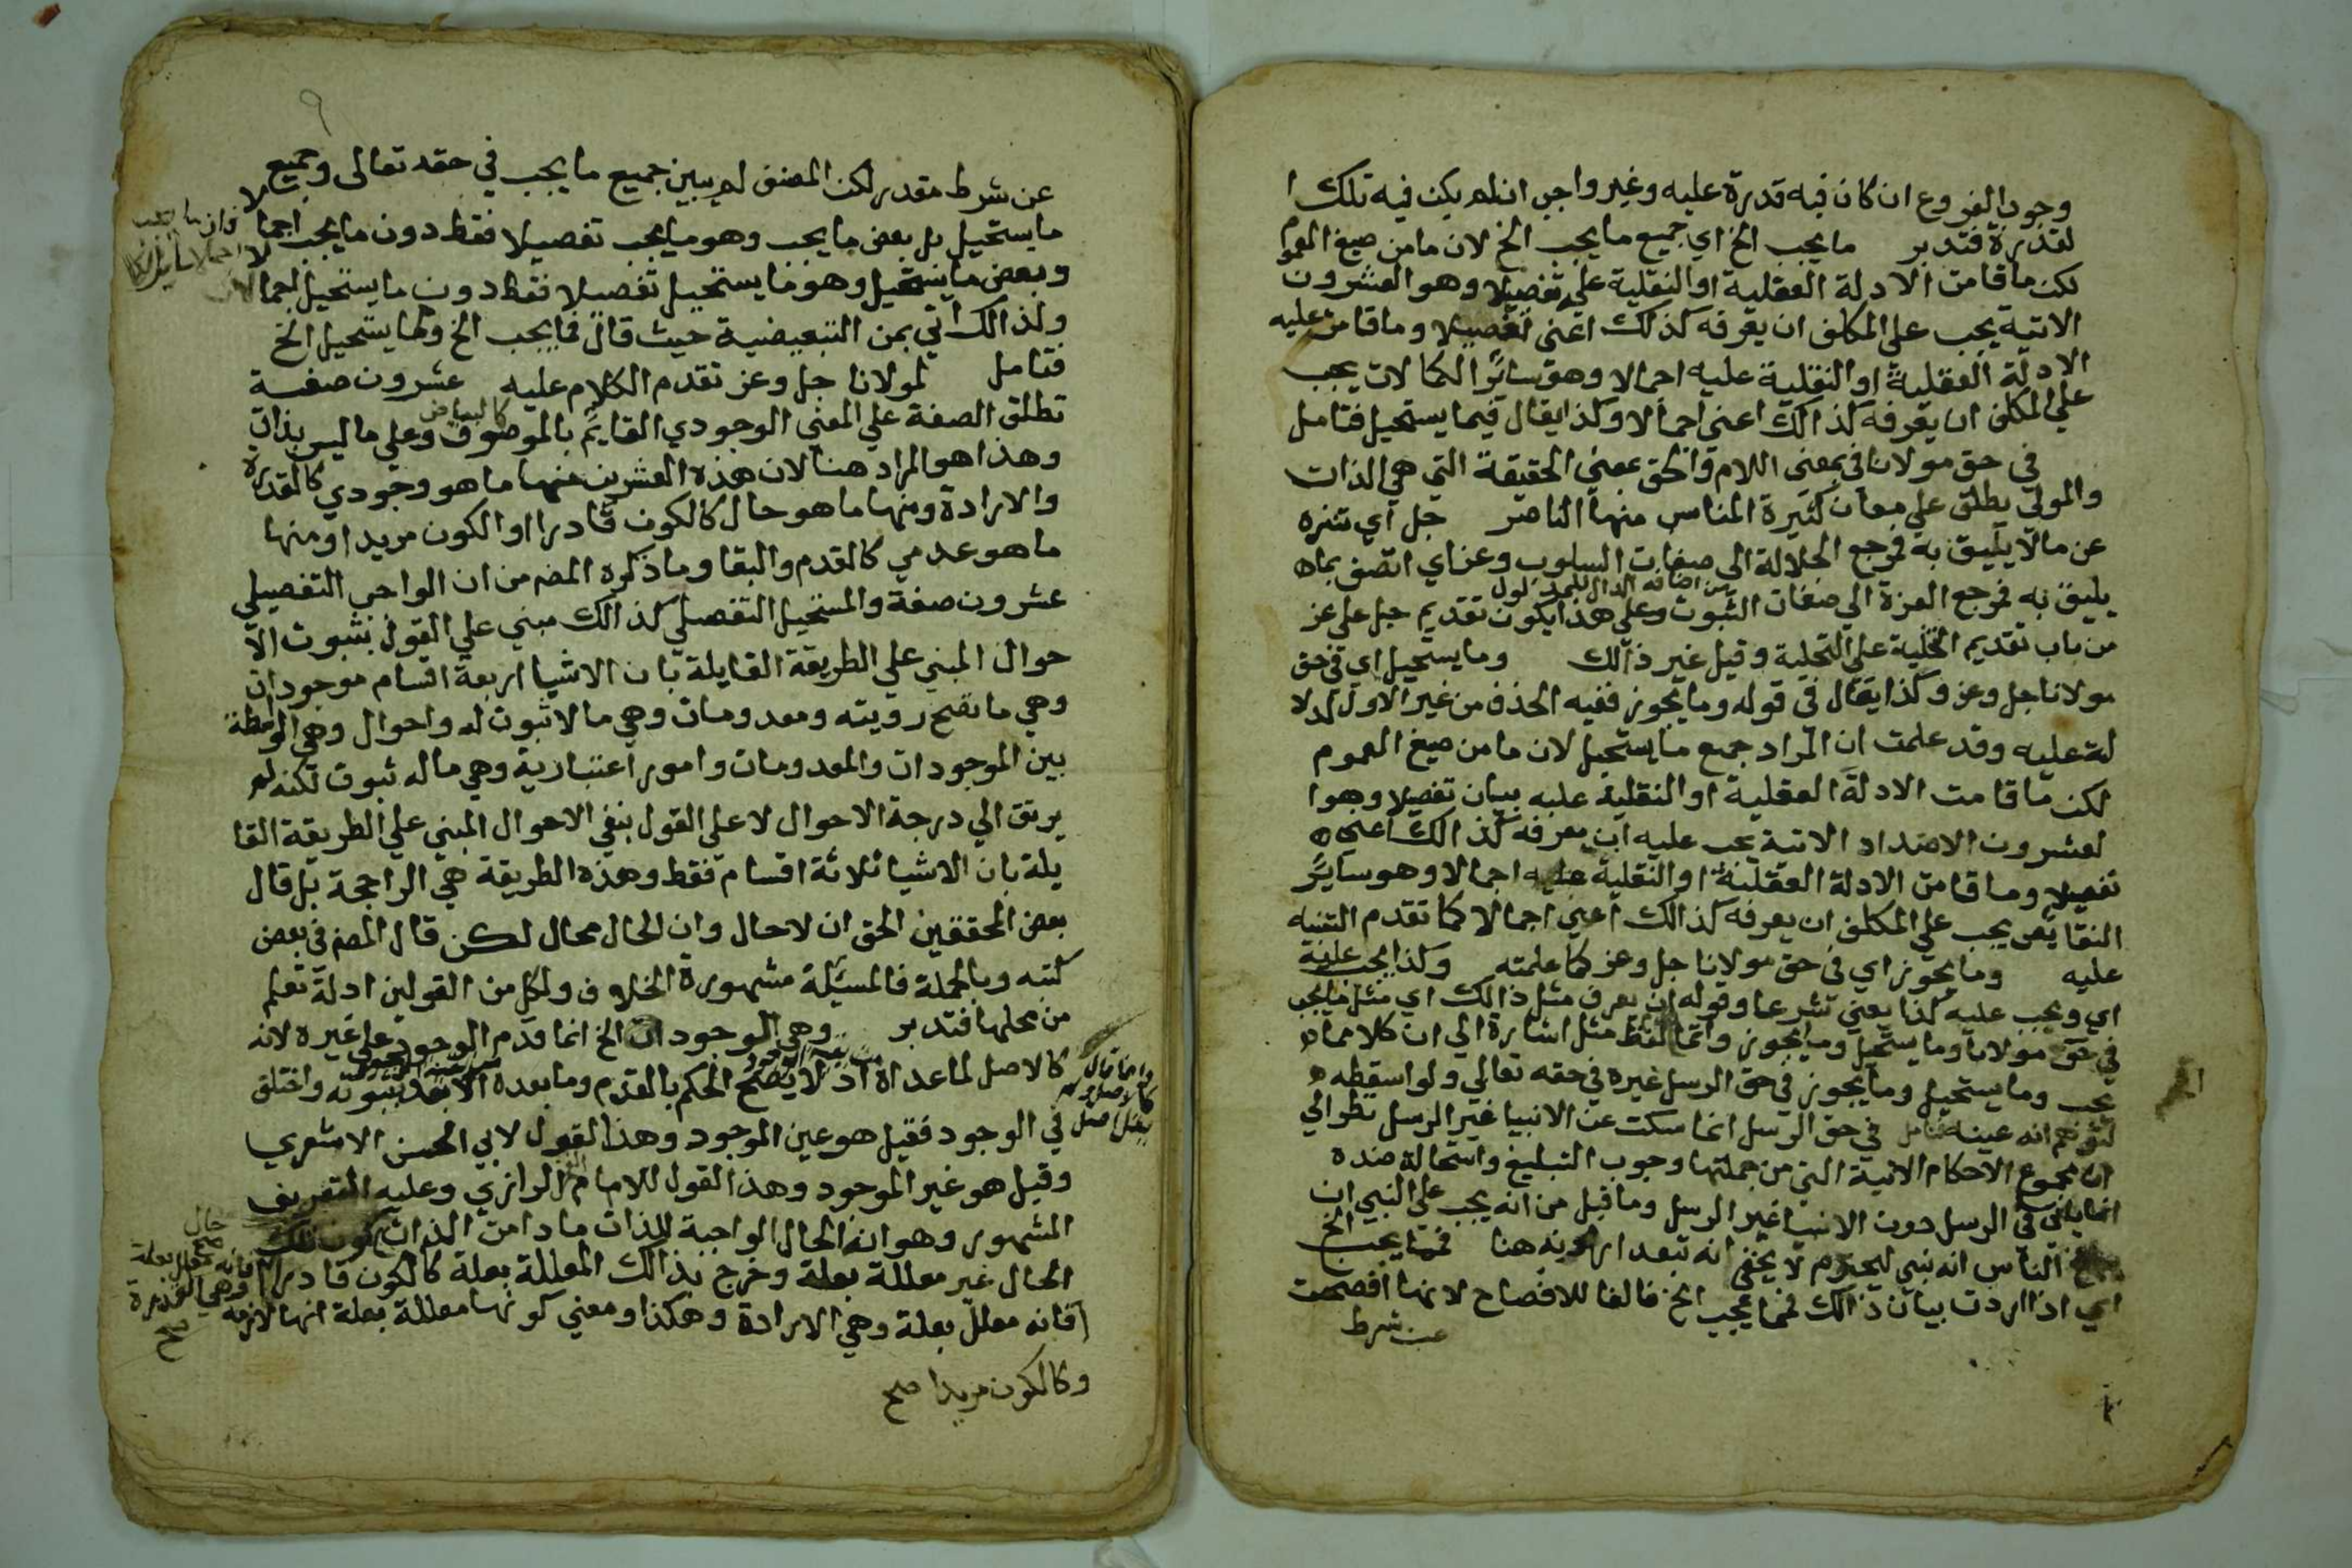 وجود الفروع ان كان فيه قدرة عليه وغير واجب ان لم يكن فيه تلك ا
لقدرة فتدبر ما يجب الخ اي جميع ما يجب الخ لان ما من صيغ العموم
لكن ما قامت الادلة العقلية او النقلية عليه تفصيلا وهو العشرون
الاتية يجب على المكلف ان يعرفه كذلك اعني تفصيلا وما قامت عليه
الادلة العقلية او النقلية عليه اجمالا وهو سائر الكمالات يجب
علي المكلف ان يعرفه كذالك اعني اجمالا وكذا يقال فيما يستحيل فتامل
في حق مولانا في بمعنى اللام والحق بمعني الحقيقة التي هي الذات
والمولي يطلق علي معان كثيرة المناسب منها الناصر جل اي تنزه
عن ما لا يليق به فمرجع الجلالة الى صفات السلوب وعز اي اتصف بما
من اضافة الدال للمدلول
يليق به فمرجع العزة الي صفات الثبوت وعلى هذا يكون تقديم جل على عز
من باب تقديم التخلية علي التحلية وقيل غير ذالك وما يستحيل اي في حق
مولانا جل وعز وكذا يقال في قوله وما يجوز ففيه الحذف من غير الاول لدلا
لة عليه وقد علمت ان المراد جميع ما يستحيل لان ما من صيغ العموم
لكن ما قامت الادلة العقلية او النقلية عليه ببيان تفصيلا وهو ا
لعشرون الاضداد الاتية يجب عليه ان يعرفه كذالك اعني
تفصيلا وما قامت الادلة العقلية او النقلية عليه اجمالا وهو ساير
النقايص يجب علي المكلف ان يعرفه كذالك اعني اجمالا كما تقدم التنبيه
عليه وما يجوز اي في حق مولانا جل وعز كما علمته وكذا يجب عليه
اي ويجب عليه كذا يعني شرعا وقوله ان يعرف مثل ذالك اي مثل ما يجب
في حق مولانا وما يستحيل وما يجوز وانما لفظ مثل اشارة الي ان كلا مما
يجب وما يستحيل وما يجوز في حق الرسل غيره في حقه تعالي ولو اسقطه
لتوهم انه عينه فتامل في حق الرسل انما سكت عن الانبيا غير الرسل نظرا لي
ان مجموع الاحكام الاتية التي من جملتها وجوب التبليغ واستحالة ضده
انما ياتي في الرسل دون الانبيا غير الرسل وما قيل من انه يجب علي النبي ان
يبلغ الناس انه نبي ليحترم لا يخفى انه تبعد ارادته هنا فمما يجب الخ
اي اذا اردت بيان ذالك فمما يجب الخ فالفا للافصاح لانها افصحت
عن شرط
٩
عن شرط مقدر لكن المصنف لم يبين جميع ما يجب في حقه تعالى وجميع
ما يستحيل بل بعض ما يجب وهو ما يجب تفصيلا فقط دون ما يجب اجمالا
وبعض ما يستحيل وهو ما يستحيل تفصيلا فقط دون ما يستحيل اجمالا
ولذالك اتي بمن التبعيضية حيث قال فمما يجب الخ ومما يستحيل الخ
فتامل لمولانا جل وعز تقدم الكلام عليه عشرون صفة
تطلق الصفة علي المعني الوجودي القايم بالموصوف كالبياض وعلي ما ليس بذات
وهذا هو المراد هنا لان هذه العشرين منها ما هو وجودي كالقدرة
والارادة ومنها ما هو حال كالكون قادرا او الكون مريدا ومنها
ما هو عدمي كالقدم والبقا وما ذكره المصنف من ان الواجب التفصيلي
عشرون صفة والمستحيل التفصيلي كذالك مبني علي القول بثبوت الا
حوال المبني علي الطريقة القايلة بان الاشيا اربعة اقسام موجودات
وهي ما تصح رويته ومعدومات وهي ما لا ثبوت له واحوال وهي الواسطة
بين الموجودات والمعدومات وامور اعتبارية وهي ما له ثبوت لكنه لم
يرتق الي درجة الاحوال لا على القول بنفي الاحوال المبني علي الطريقة القا
يلة بان الاشيا ثلاثة اقسام فقط وهذه الطريقة هي الراجحة بل قال
بعض المحققين الحق ان لا حال وان الحال محال لكن قال المصنف في بعض
كتبه وبالجملة فالمسئلة مشهورة الخلاف ولكل من القولين ادلة تعلم
من محلها فتدبر وهي الوجود الخ انما قدم الوجود على غيره لانه
كالاصل لما عداه اذ لا يصح الحكم بالقدم وما بعده الا بعد ثبوته واختلف
وانما قال
كالاصل ولم
يقل اصل
في الوجود فقيل هو عين الموجود وهذا القول لابي الحسن الاشعري
وقيل هو غير الموجود وهذا القول للامام الرازي وعليه التعريف
المشهور وهو انه الحال الواجبة للذات ما دامت الذات كون تلك
الحال غير معللة بعلة وخرج بذالك المعللة بعلة كالكون قادرا
فانه معلل بعلة
وهي القدرة
صح
فانه معلل بعلة وهي الارادة وهكذا ومعني كونها معللة بعلة انها لازمة
وكالكون مريدا صح